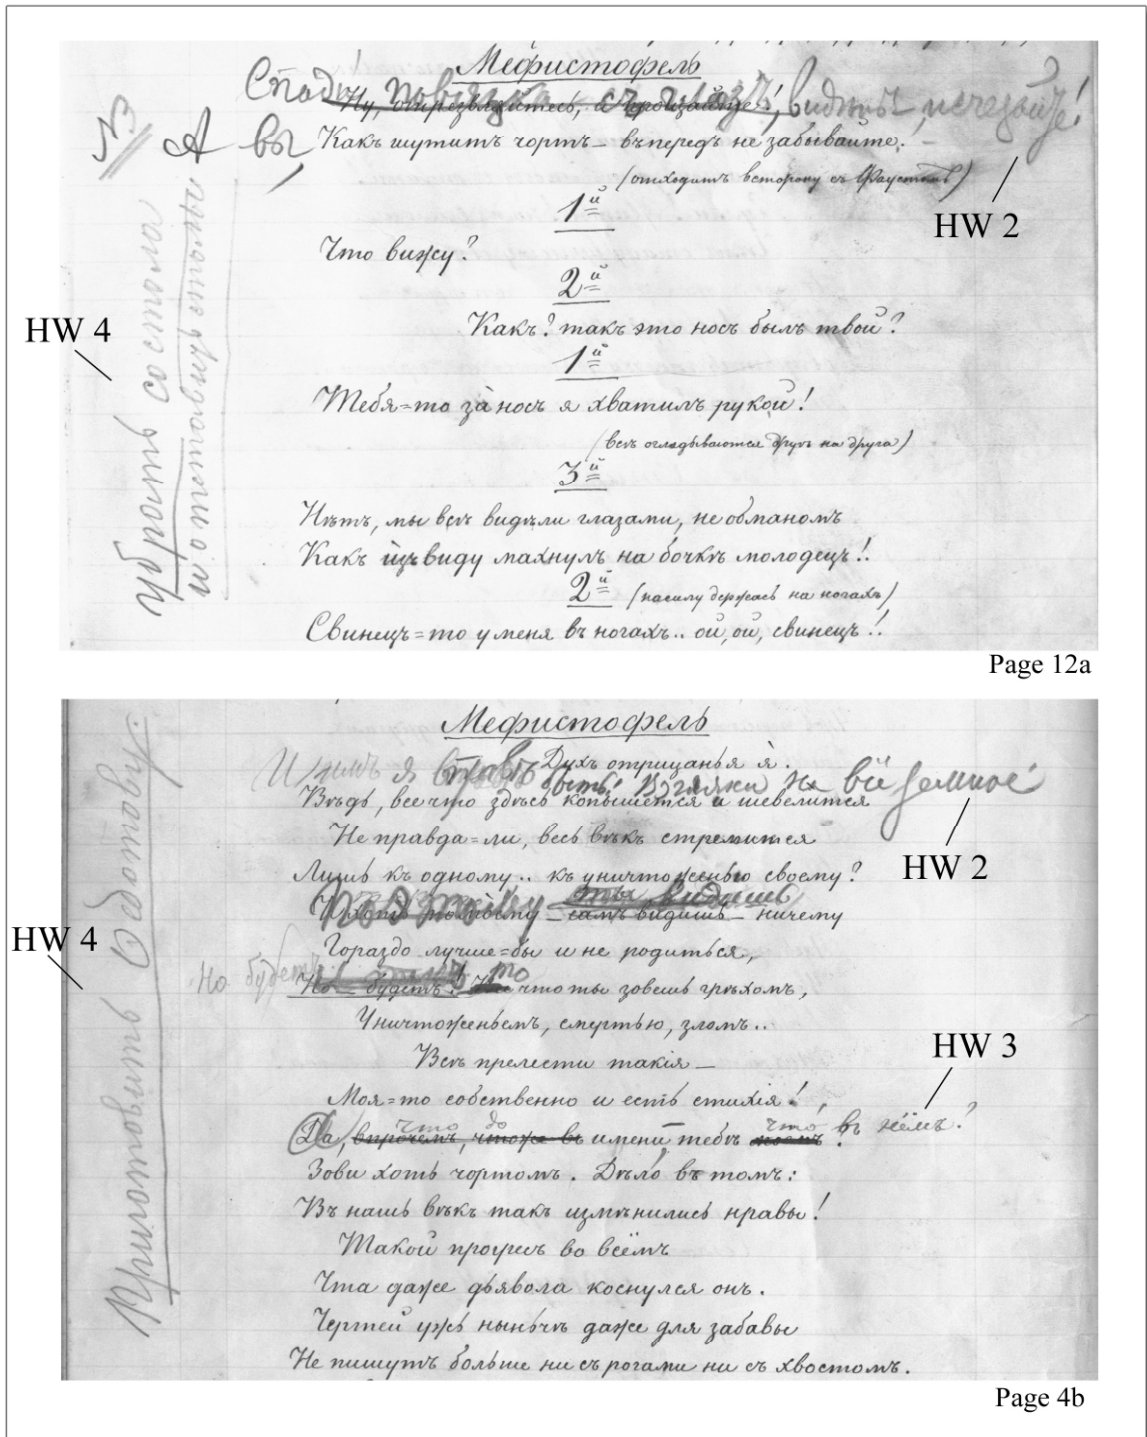 Мефистофель
Спади, повязка съ глазъ, видѣнье, исчезай же!
Ну, отрезвляйтесь, а прощайте!
NB
А вы,
Какъ шутитъ чортъ — въпередъ не забывайте.
(отходитъ всторону съ Фаустомъ)
HW 2
1й
Что вижу?
2й
HW 4
Какъ? такъ это носъ былъ твой?
1й
Тебя=то за̀ носъ я хватилъ рукой!
(всѣ оглядываются другъ на друга)
3й
Нѣтъ, мы всѣ видѣли глазами, не обманомъ
Какъ изъ виду махнулъ на бочкѣ молодецъ!!
2й (насилу держась на ногахъ)
Свинецъ=то у меня въ ногахъ.. ой, ой, свинецъ!!
Убрать со стола
и отставить столы
Page 12a
Мефистофель
Духъ отрицанья я̀.
И тѣмъ я правъ Взгляни на всё земное
Вѣдь, все что здѣсь копышется и шевелится
Не правда=ли, весь вѣкъ стремится
HW 2
Лишь къ одному.. къ уничтоженью своему?
ты видишь
самъ видишь — ничему
HW 4
Гораздо лучше=бы и не родиться,
Но будетъ то
Но будетъ! что ты зовешь грѣхомъ,
Уничтоженьемъ, смертью, зломъ..
Всѣ прелести такія —
HW 3
Моя=то собственно и есть стихія!
что до что въ нёмъ?
Да, впрочемъ, чтоже въ имени тебѣ моемъ?
Зови хоть чортомъ. Дѣло въ томъ:
Въ нашъ вѣкъ такъ измѣнились нравы!
Такой прогресъ во всёмъ
Что даже дьявола коснулся онъ.
Чертей ужъ нынѣчѣ даже для забавы
Не пишутъ больше ни съ рогами ни съ хвостомъ.
Приготовить Федотову:
Page 4b